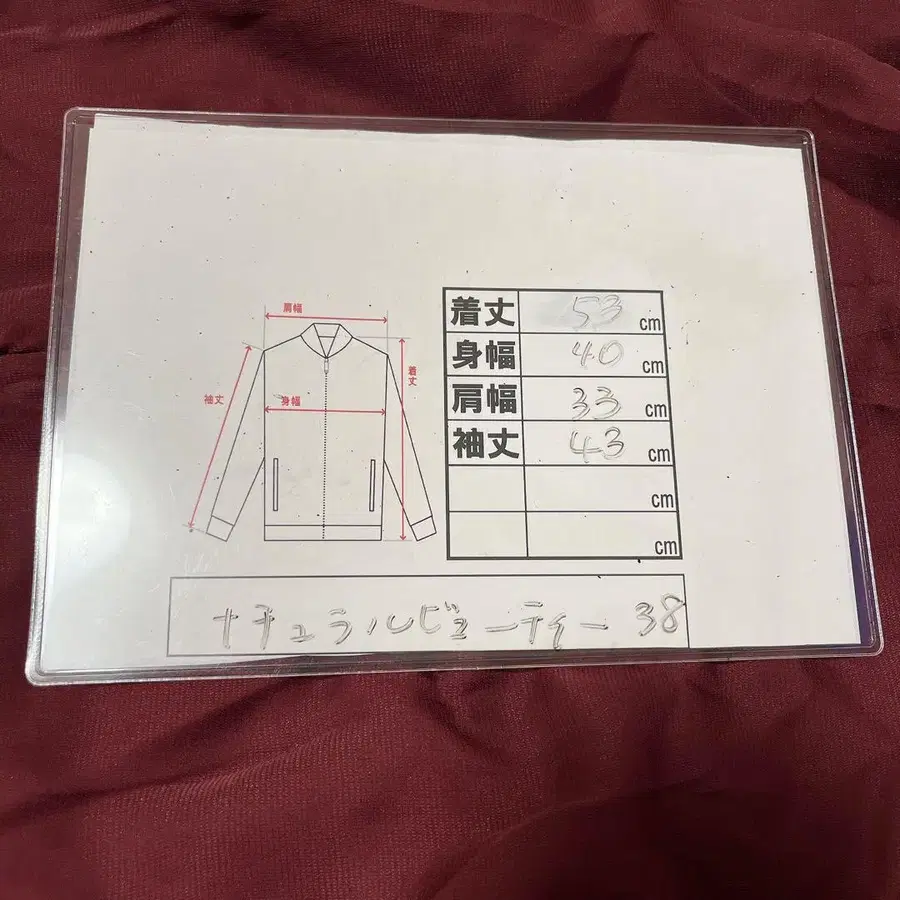 肩幅
袖丈
身幅
着丈
着丈 53 cm
身幅 40 cm
肩幅 33 cm
袖丈 43 cm
cm
cm
ナチュラルビューティー 38